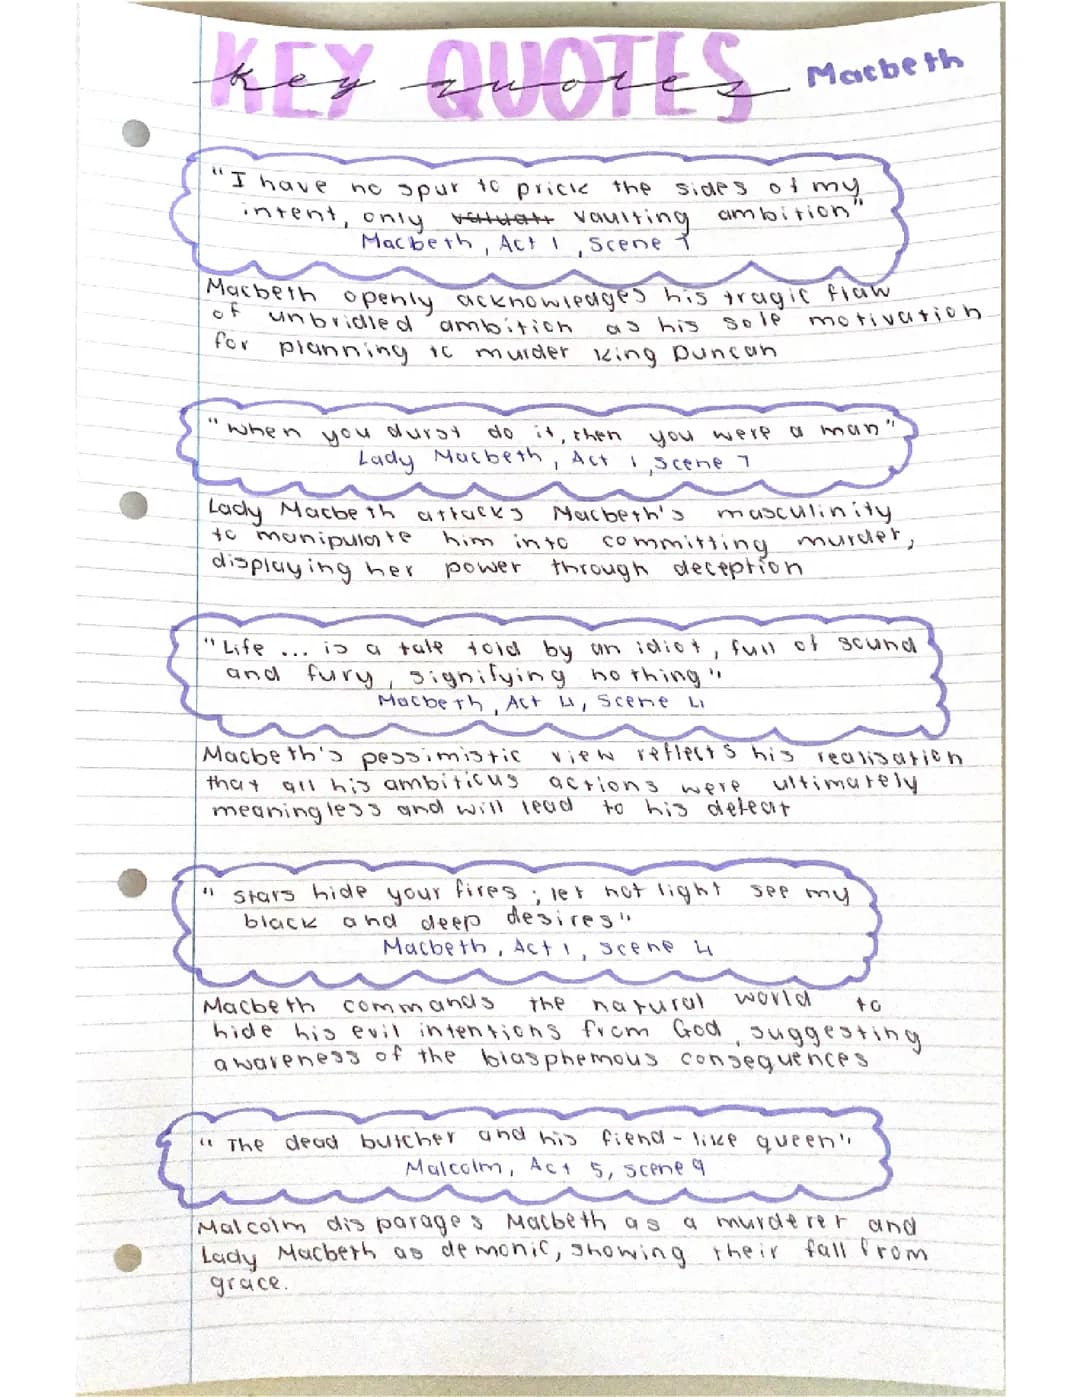 KEY QUOTES
key quotes
Macbeth
"I have no spur to prick the sides of my
intent, only vaulting ambition"
Macbeth, Act 1, Scene 7
Macbeth openly acknowledges his tragic flaw
of unbridled ambition as his sole motivation
for planning to murder King Duncan
"When you durst do it, then you were a man"
Lady Macbeth, Act 1, Scene 7
Lady Macbeth attacks Macbeth's masculinity
to manipulate him into committing murder,
displaying her power through deception
"Life ... is a tale told by an idiot, full of sound
and fury, signifying nothing"
Macbeth, Act 4, Scene 4
Macbeth's pessimistic view reflects his realisation
that all his ambitious actions were ultimately
meaningless and will lead to his defeat
"Stars hide your fires; let not light see my
black and deep desires"
Macbeth, Act 1, Scene 4
Macbeth commands the natural world to
hide his evil intentions from God, suggesting
awareness of the blasphemous consequences
"The dead butcher and his fiend-like queen"
Malcolm, Act 5, Scene 9
Malcolm disparages Macbeth as a murderer and
Lady Macbeth as demonic, showing their fall from
grace.